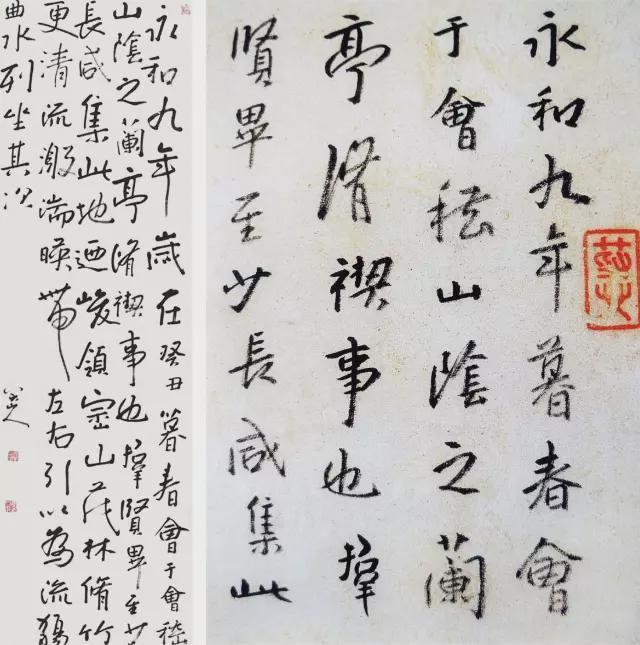 永和九年暮春會
于會稽山陰之蘭
亭脩禊事也羣
賢畢至少長咸集此
永和九年歲在癸丑暮春會于會稽
山陰之蘭亭脩禊事也羣賢畢至少
長咸集此地迺峻領崇山茂林脩竹
更清流激湍暎帶左右引以為流觴
曲水列坐其次
八大山人